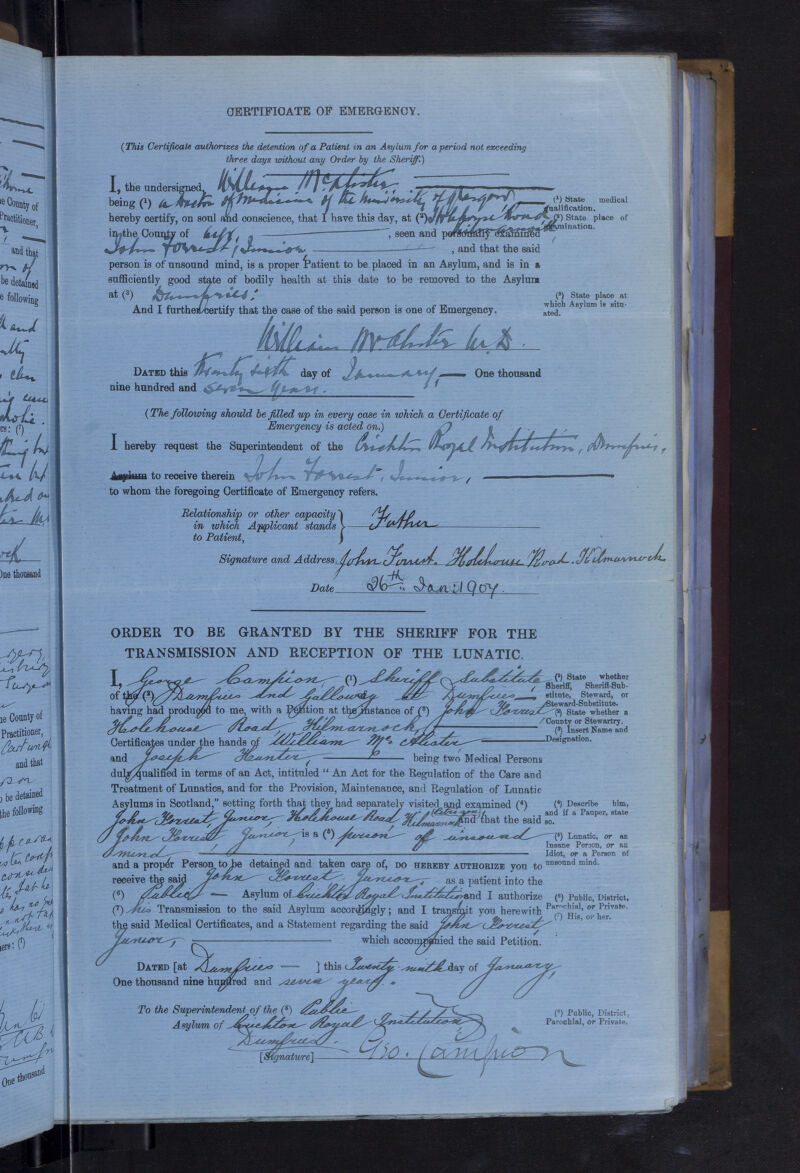 CERTIFICATE OF EMERGENCY.
(This Certificate authorizes the detention of a Patient in an Asylum for a period not exceeding
three days without any Order by the Sheriff.)
I, the undersigned, William McAlister
being (¹) a Doctor of Medicine of the University of Glasgow
(¹) State medical qualification.
hereby certify, on soul and conscience, that I have this day, at (²) Holehouse Road Kilmarnock
(²) State place of examination.
in the County of Ayr, , seen and personally examined
John Forrest, Junior, , and that the said
person is of unsound mind, is a proper Patient to be placed in an Asylum, and is in a
sufficiently good state of bodily health at this date to be removed to the Asylum
at (³) Dumfries.
(³) State place at which Asylum is situated.
And I further certify that the case of the said person is one of Emergency.
William McAlister M.D.
DATED this Twenty sixth day of January, One thousand
nine hundred and seven years.
(The following should be filled up in every case in which a Certificate of
Emergency is acted on.)
I hereby request the Superintendent of the Crichton Royal Institution, Dumfries,
Asylum to receive therein John Forrest, Junior,
to whom the foregoing Certificate of Emergency refers.
Relationship or other capacity
in which Applicant stands
to Patient,
Father
Signature and Address, John Forrest. Holehouse Road. Kilmarnock
Date 26th Jan: 1907.
ORDER TO BE GRANTED BY THE SHERIFF FOR THE
TRANSMISSION AND RECEPTION OF THE LUNATIC.
I, George Campion, (¹) Sheriff Substitute
(¹) State whether Sheriff, Sheriff-Substitute, Steward, or Steward-Substitute.
of the (²) Dumfries and Galloway at Dumfries
(²) State whether a County or Stewartry.
having had produced to me, with a Petition at the instance of (³) John Forrest
(³) Insert Name and Designation.
Holehouse Road, Kilmarnock,
Certificates under the hands of William McAlister
and Joseph Hunter, being two Medical Persons
duly qualified in terms of an Act, intituled "An Act for the Regulation of the Care and
Treatment of Lunatics, and for the Provision, Maintenance, and Regulation of Lunatic
Asylums in Scotland," setting forth that they had separately visited and examined (⁴)
(⁴) Describe him, and if a Pauper, state so.
John Forrest, Junior, Holehouse Road Kilmarnock and that the said
John Forrest Junior is a (⁵) person of unsound
mind
(⁵) Lunatic, or an Insane Person, or an Idiot, or a Person of unsound mind.
and a proper Person to be detained and taken care of, DO HEREBY AUTHORIZE you to
receive the said John Forrest Junior, as a patient into the
(⁶) Public Asylum of Crichton Royal Institution and I authorize
(⁶) Public, District, Parochial, or Private.
(⁷) his Transmission to the said Asylum accordingly; and I transmit you herewith
(⁷) His, or her.
the said Medical Certificates, and a Statement regarding the said John Forrest,
Junior, which accompanied the said Petition.
DATED [at Dumfries ] this Twenty ninth day of January,
One thousand nine hundred and seven years.
To the Superintendent of the (⁸) Public
(⁸) Public, District, Parochial, or Private.
Asylum of Crichton Royal Institution
Dumfries.
[Signature] Geo. Campion